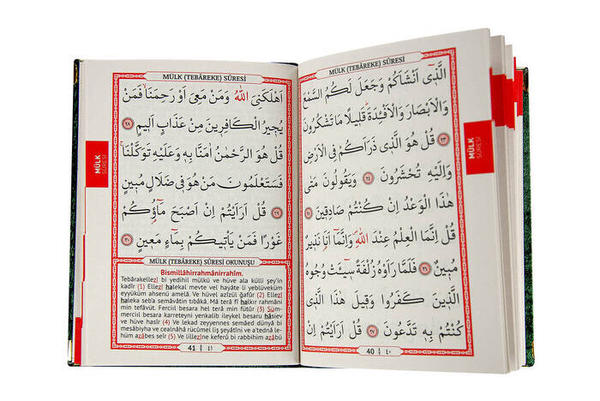 MÜLK (TEBÂREKE) SÛRESİ
الَّذٖٓي اَنْشَاَكُمْ وَجَعَلَ لَكُمُ السَّمْعَ
وَالْاَبْصَارَ وَالْاَفْـِٔدَةَ قَلٖيلًا مَا تَشْكُرُونَ
﴿٢٣﴾ قُلْ هُوَ الَّذٖي ذَرَاَكُمْ فِي الْاَرْضِ
وَاِلَيْهِ تُحْشَرُونَ ﴿٢٤﴾ وَيَقُولُونَ مَتٰى
هٰذَا الْوَعْدُ اِنْ كُنْتُمْ صَادِقٖينَ ﴿٢٥﴾
قُلْ اِنَّمَا الْعِلْمُ عِنْدَ اللّٰهِ وَاِنَّمَٓا اَنَا نَذٖيرٌ
مُبٖينٌ ﴿٢٦﴾ فَلَمَّا رَاَوْهُ زُلْفَةً سٖٓيـَٔتْ وُجُوهُ
الَّذٖينَ كَفَرُوا وَقٖيلَ هٰذَا الَّذٖي
كُنْتُمْ بِهٖ تَدَّعُونَ ﴿٢٧﴾ قُلْ اَرَاَيْتُمْ اِنْ
40 ٤٠
MÜLK
SÛRESİ
MÜLK (TEBÂREKE) SÛRESİ
اَهْلَكَنِيَ اللّٰهُ وَمَنْ مَعِيَ اَوْ رَحِمَنَا فَمَنْ
يُجٖيرُ الْكَافِرٖينَ مِنْ عَذَابٍ اَلٖيمٍ ﴿٢٨﴾
قُلْ هُوَ الرَّحْمٰنُ اٰمَنَّا بِهٖ وَعَلَيْهِ تَوَكَّلْنَا
فَسَتَعْلَمُونَ مَنْ هُوَ فٖي ضَلَالٍ مُبٖينٍ
﴿٢٩﴾ قُلْ اَرَاَيْتُمْ اِنْ اَصْبَحَ مَٓاؤُكُمْ
غَوْرًا فَمَنْ يَأْتٖيكُمْ بِمَٓاءٍ مَعٖينٍ ﴿٣٠﴾
MÜLK (TEBÂREKE) SÛRESİ OKUNUŞU
Bismillâhirrahmânirrahîm.
Tebârakellezî bi yedihil mülkü ve hüve alâ külli şey'in
kadîr (1) Ellezî halekal mevte vel hayâte li yeblüveküm
eyyüküm ahsenü amelâ. Ve hüvel azîzül ğafûr (2) Ellezî
haleka seb'a semâvâtin tıbâkâ. Mâ terâ fî halkır rahmâni
min tefâvüt. Ferciıl besara hel terâ min fütûr (3) Süm-
merciıl besara karrateyni yenkalib ileykel besaru hâsiev
ve hüve hasîr (4) Ve lekad zeyyennes semâed dünyâ bi
mesâbîyha ve cealnâhâ rucûmel liş şeyâtîni ve a'tednâ le-
hüm azâbes seîr (5) Ve lillezîne keferû bi rabbihim azâbü
41 ٤١
MÜLK
SÛRESİ